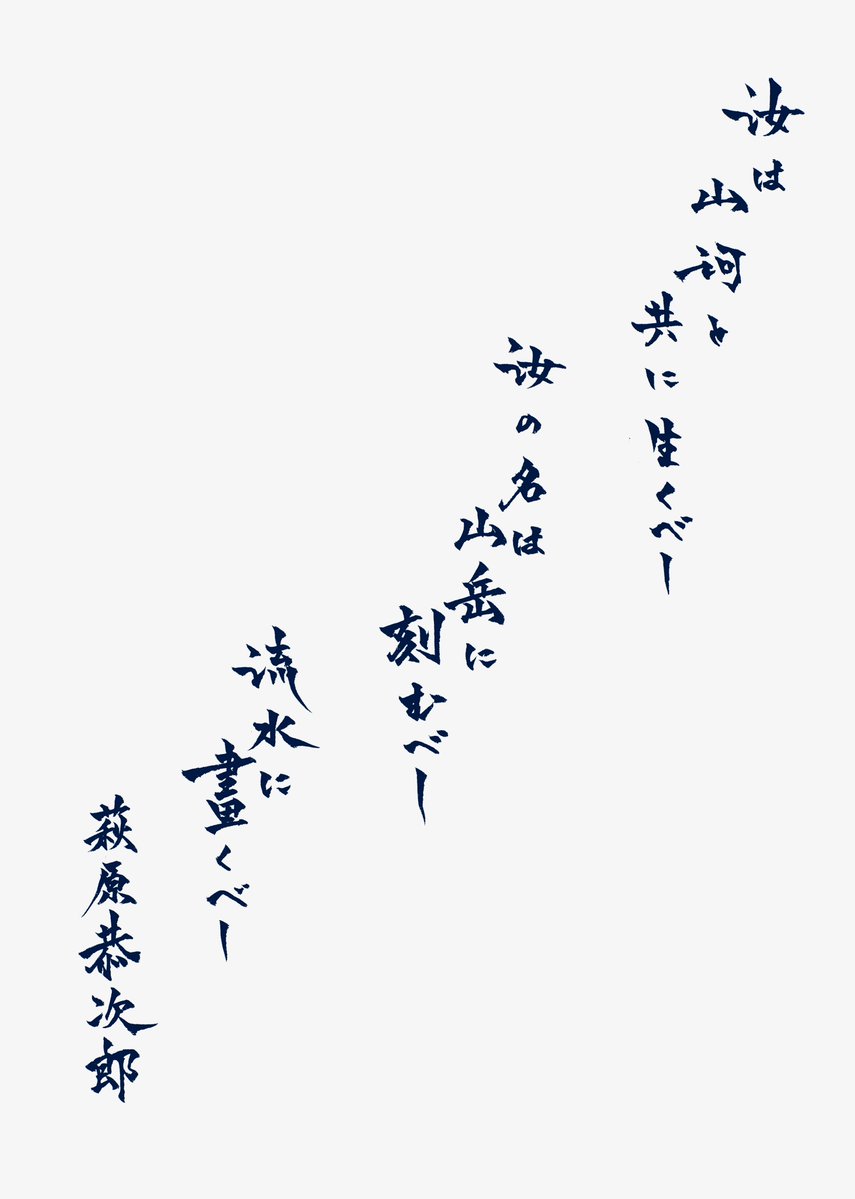 汝は
山河と
共に生くべし
汝の名は
山岳に
刻むべし
流水に
畫くべし
萩原恭次郎